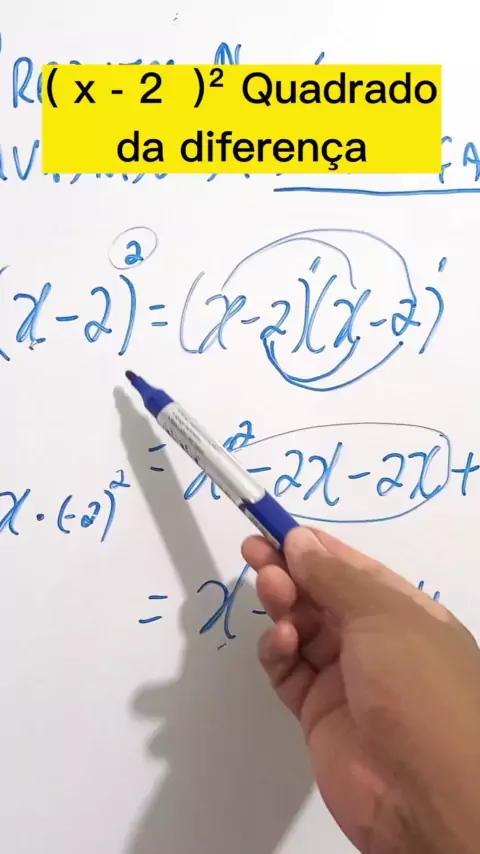 ( x - 2 )² Quadrado
da diferença
(x-2)² = (x-2)¹(x-2)¹
= x² -2x -2x +
x · (-2)²
= x